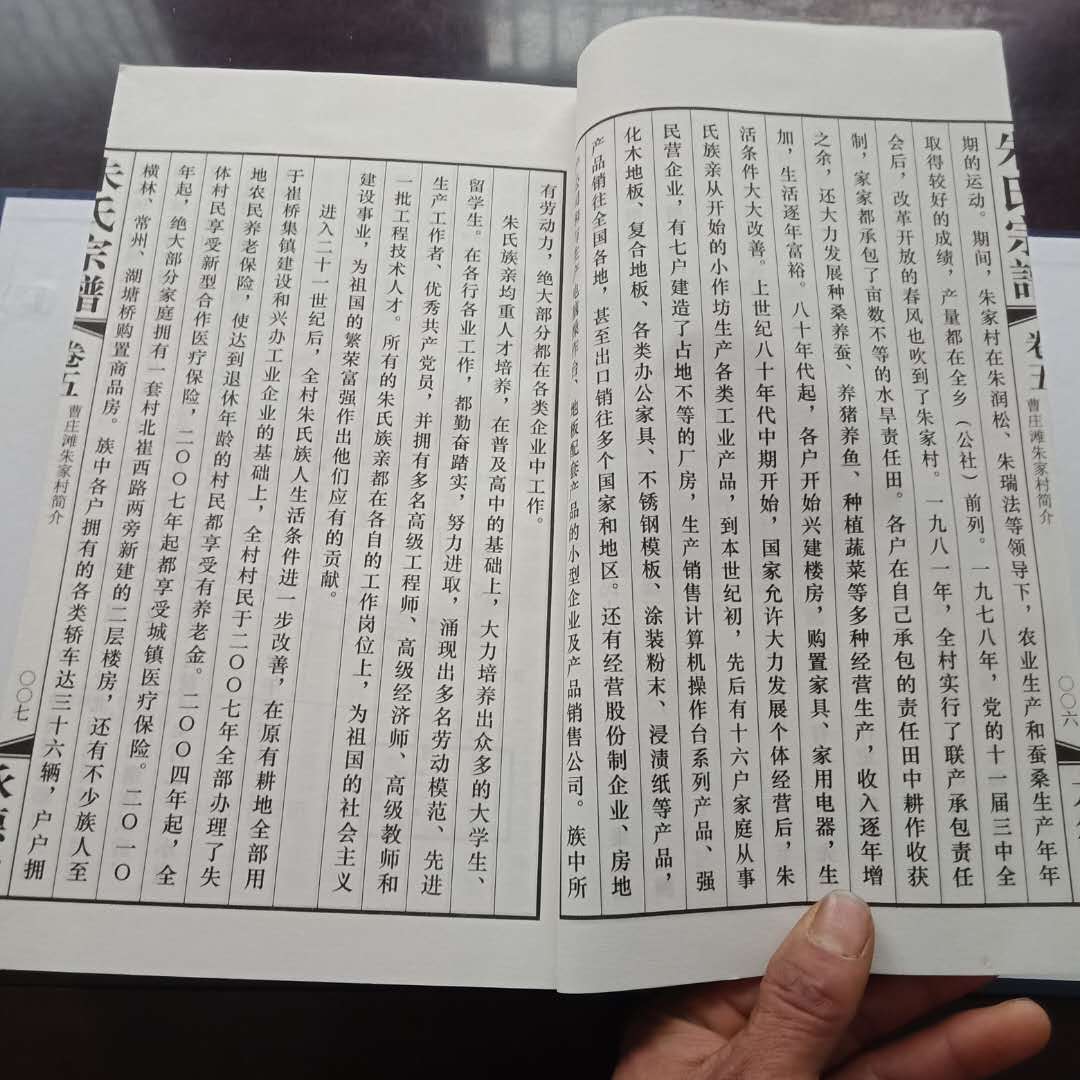 朱氏宗譜
卷五
曹庄滩朱家村简介
〇〇六
期的运动。期间，朱家村在朱润松、朱瑞法等领导下，农业生产和蚕桑生产年年
取得较好的成绩，产量都在全乡（公社）前列。一九七八年，党的十一届三中全
会后，改革开放的春风也吹到了朱家村。一九八一年，全村实行了联产承包责任
制，家家都承包了亩数不等的水旱责任田。各户在自己承包的责任田中耕作收获
之余，还大力发展种桑养蚕、养猪养鱼、种植蔬菜等多种经营生产，收入逐年增
加，生活逐年富裕。八十年代起，各户开始兴建楼房，购置家具、家用电器，生
活条件大大改善。上世纪八十年代中期开始，国家允许大力发展个体经营后，朱
氏族亲从开始的小作坊生产各类工业产品，到本世纪初，先后有十六户家庭从事
民营企业，有七户建造了占地不等的厂房，生产销售计算机操作台系列产品、强
化木地板、复合地板、各类办公家具、不锈钢模板、涂装粉末、浸渍纸等产品，
产品销往全国各地，甚至出口销往多个国家和地区。还有经营股份制企业、房地
地板配套产品的小型企业及产品销售公司。族中所
有劳动力，绝大部分都在各类企业中工作。
朱氏族亲均重人才培养，在普及高中的基础上，大力培养出众多的大学生、
留学生。在各行各业工作，都勤奋踏实，努力进取，涌现出多名劳动模范、先进
生产工作者、优秀共产党员，并拥有多名高级工程师、高级经济师、高级教师和
一批工程技术人才。所有的朱氏族亲都在各自的工作岗位上，为祖国的社会主义
建设事业，为祖国的繁荣富强作出他们应有的贡献。
进入二十一世纪后，全村朱氏族人生活条件进一步改善，在原有耕地全部用
于崔桥集镇建设和兴办工业企业的基础上，全村村民于二〇〇七年全部办理了失
地农民养老保险，使达到退休年龄的村民都享受有养老金。二〇〇四年起，全
体村民享受新型合作医疗保险，二〇〇七年起都享受城镇医疗保险。二〇一〇
年起，绝大部分家庭拥有一套村北崔西路两旁新建的二层楼房，还有不少族人至
横林、常州、湖塘桥购置商品房。族中各户拥有的各类轿车达三十六辆，户户拥
朱氏宗譜
卷五
曹庄滩朱家村简介
〇〇七